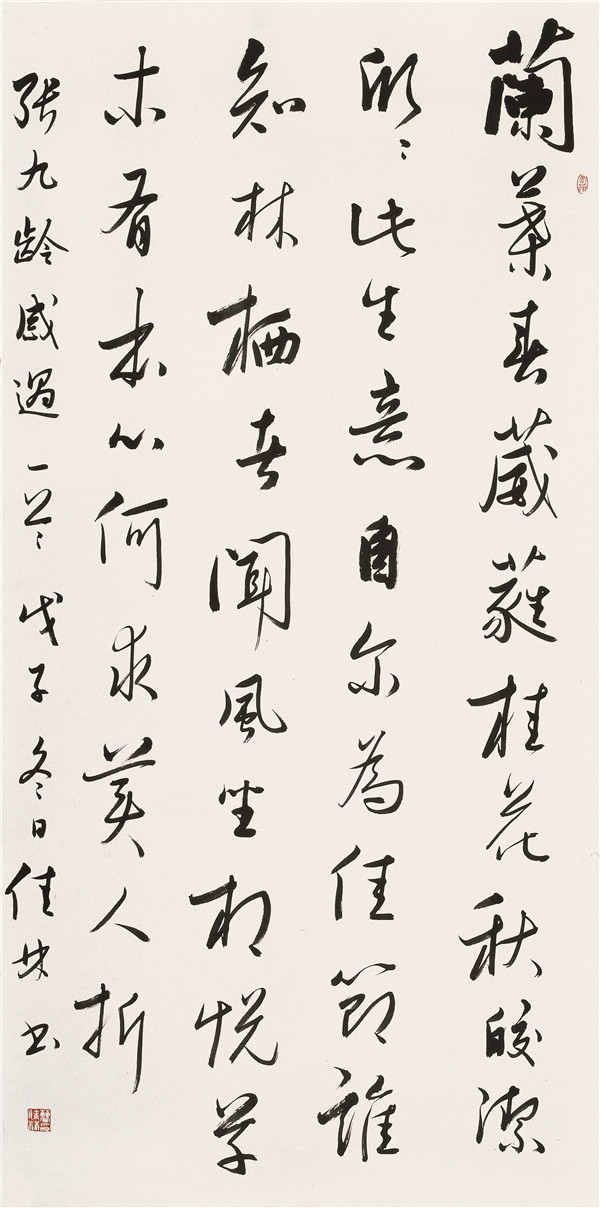 蘭葉春葳蕤桂花秋皎潔
欣々此生意自尔為佳節誰
知林栖者聞風坐相悦草
木有本心何求美人折
張九龄感遇一首戊子冬日佳林书